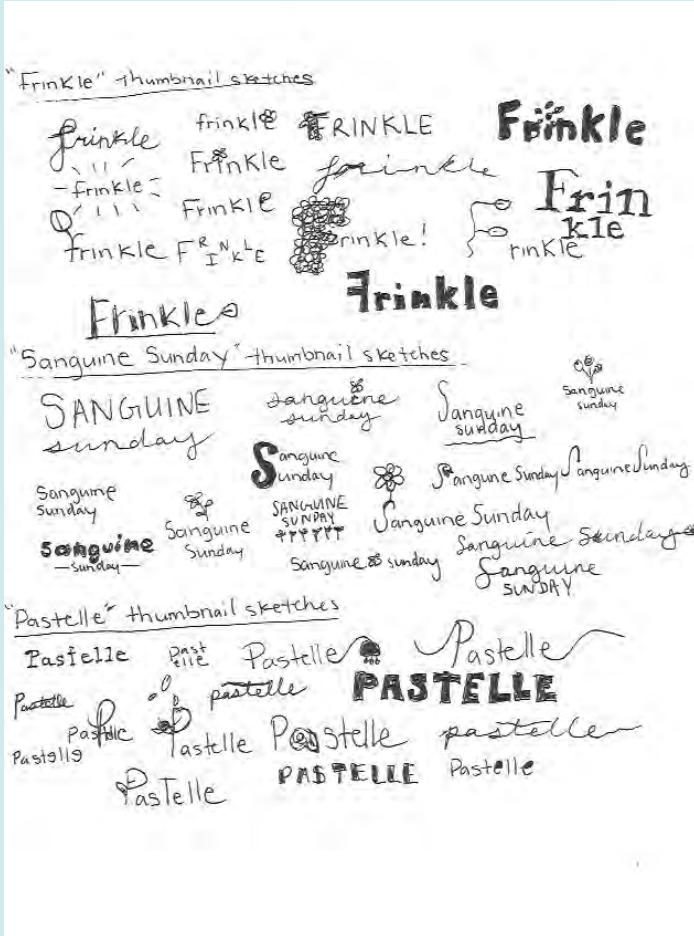 "Frinkle" thumbnail sketches
frinkle
frinkle
FRINKLE
Frinkle
frinkle
Frinkle
frinkle
Frinkle
Frin
kle
frinkle
FRINKLE
Frinkle!
Frinkle
Frinkle
Frinkle
"Sanguine Sunday" thumbnail sketches
SANGUINE
sunday
sanguine
sunday
Sanguine
sunday
Sanguine
sunday
Sanguine
Sunday
Sangune Sunday
Sanguine Sunday
Sanguine
Sunday
Sanguine
Sunday
SANGUINE
SUNDAY
Sanguine Sunday
Sanguine
sunday
Sanguine sunday
Sanguine Sunday
Sanguine
SUNDAY
"Pastelle" thumbnail sketches
Pastelle
Past
elle
Pastelle
Pastelle
Pastelle
pastelle
PASTELLE
Pastelle
Pastelle
Pastelle
pastelle
Pastelle
PasTelle
PASTELLE
Pastelle